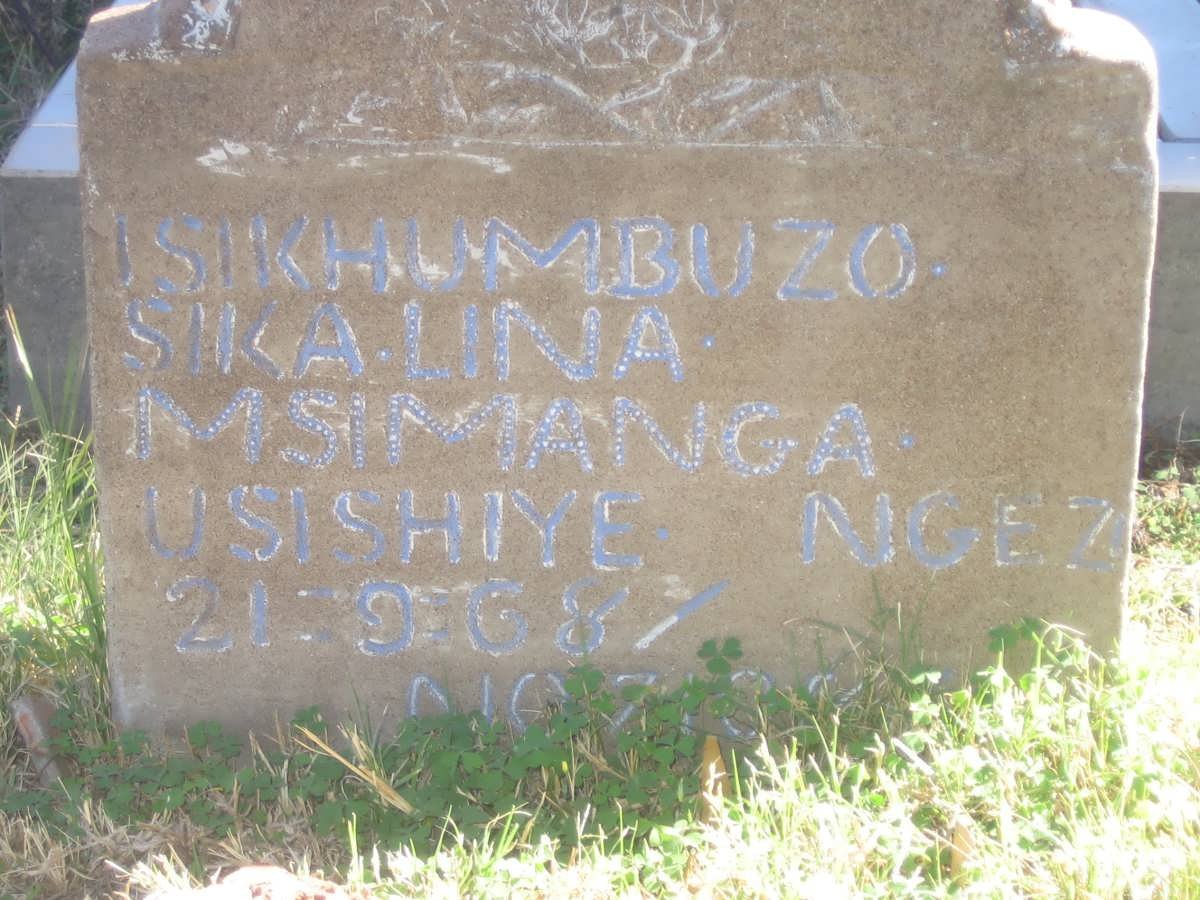 ISIKHUMBUZO.
SIKA.LINA.
MSIMANGA.
USISHIYE. NGEZI
21=9=68/